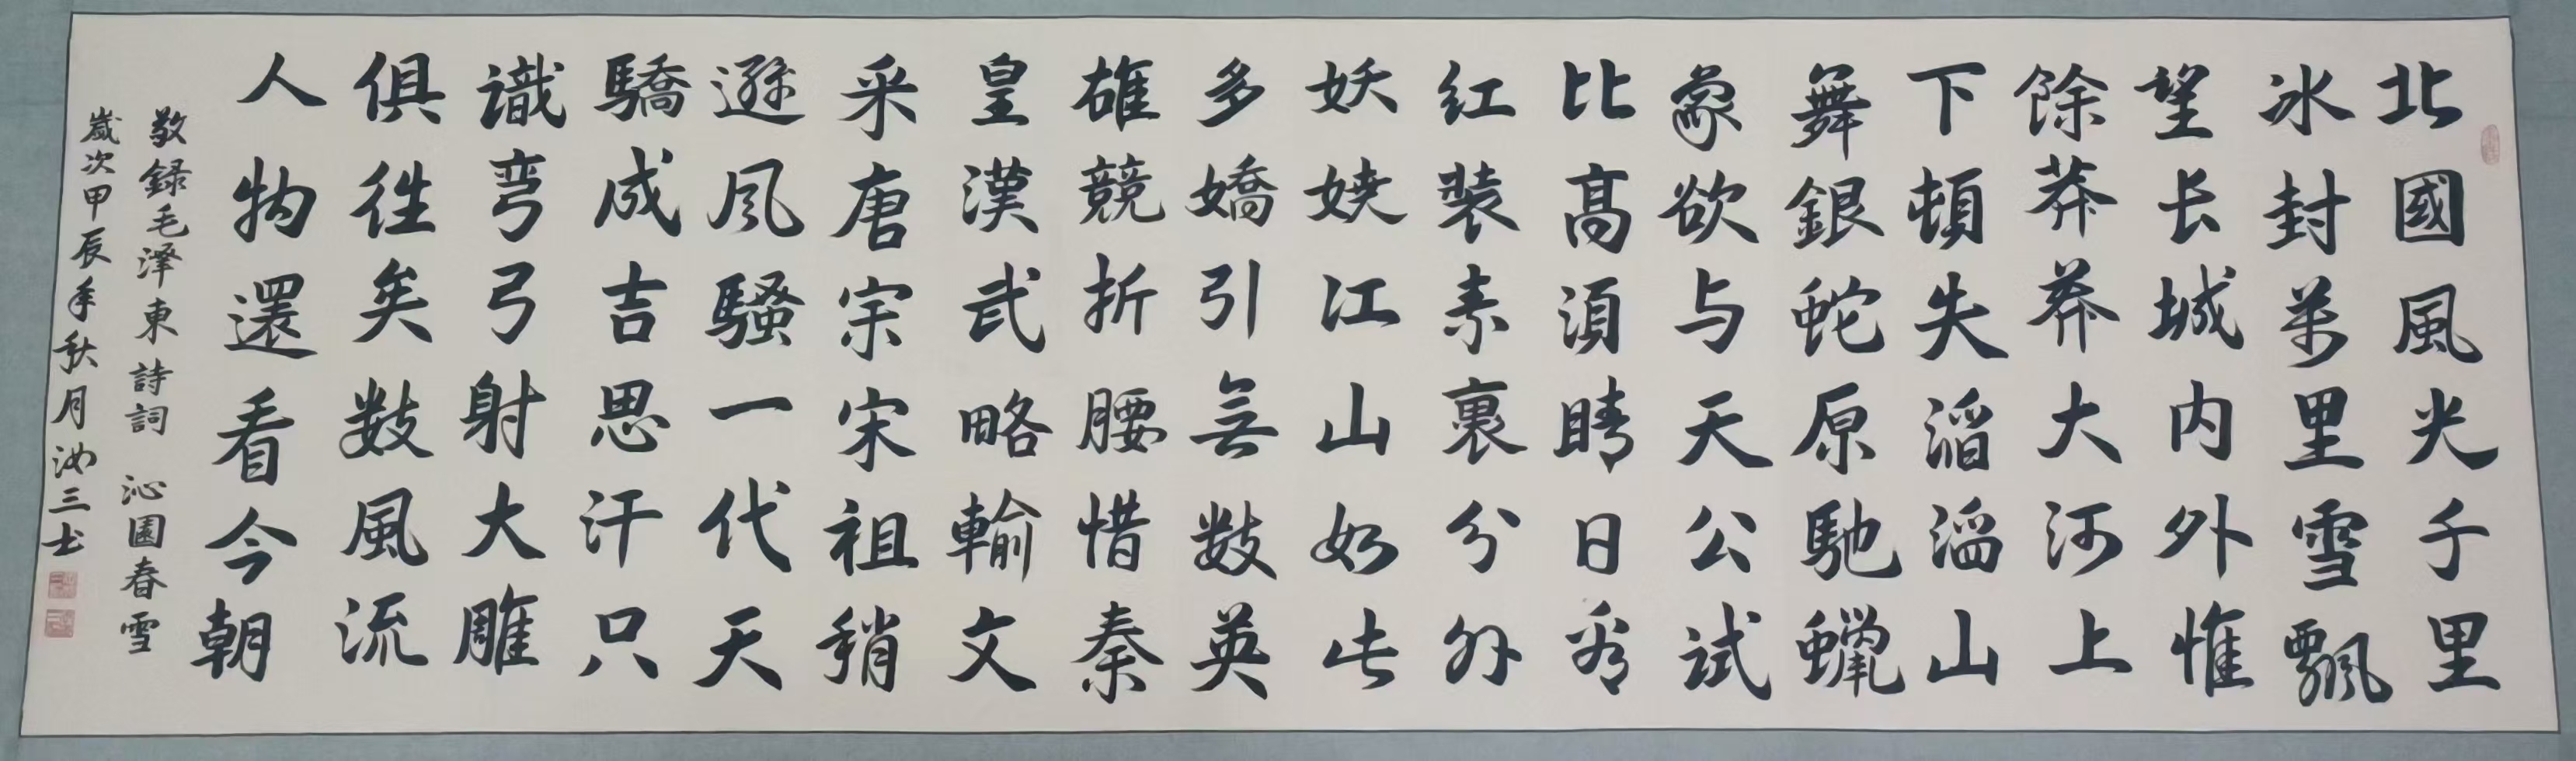 北國風光千里
冰封萬里雪飄
望长城内外惟
餘莽莽大河上
下頓失滔滔山
舞銀蛇原馳蠟
象欲与天公試
比高須晴日看
红裝素裹分外
妖娆江山如此
多嬌引無數英
雄競折腰惜秦
皇漢武略輸文
采唐宗宋祖稍
遜風騷一代天
驕成吉思汗只
識彎弓射大雕
俱往矣數風流
人物還看今朝
敬録毛澤東詩詞 沁園春雪
歲次甲辰年秋月汝三书